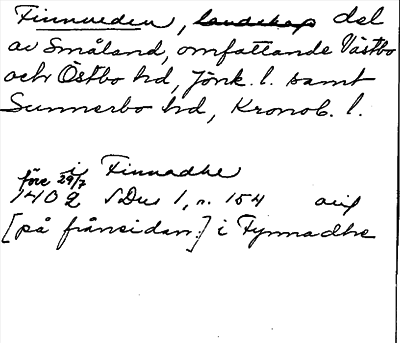 Finnveden, landskap del
av Småland, omfattande Västbo
och Östbo hd, Jönk. l. samt
Sunnerbo hd, Kronob. l.
i Finnadhe
före 29/7
1402 SDns 1, s. 154 orig
[på frånsidan:] i Fynnadhe